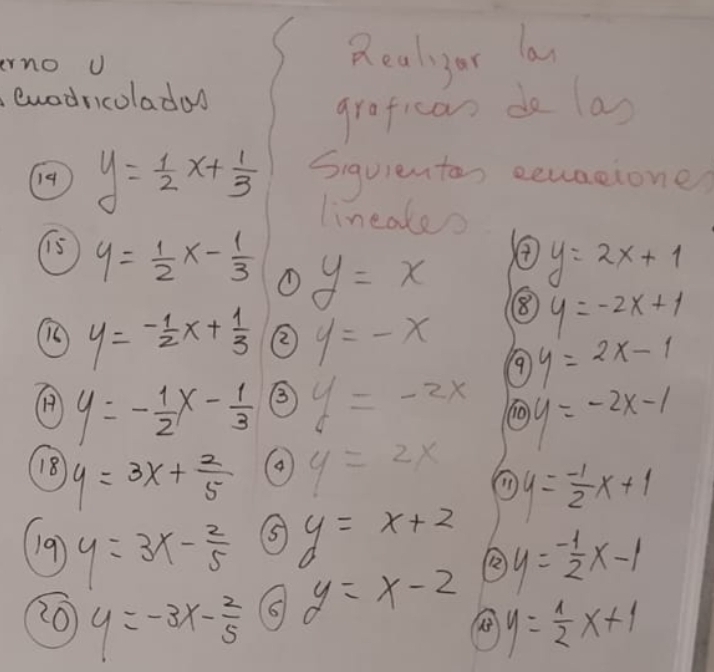 erno U
cuadriculados
⑭ y = 1/2 x + 1/3
⑮ y = 1/2 x - 1/3
⑯ y = -1/2 x + 1/3
⑰ y = -1/2 x - 1/3
⑱ y = 3x + 2/5
⑲ y = 3x - 2/5
⑳ y = -3x - 2/5
Realizar las
graficas de las
Siguientes ecuaciones
lineales
① y = x
② y = -x
③ y = -2x
④ y = 2x
⑤ y = x+2
⑥ y = x-2
⑦ y = 2x+1
⑧ y = -2x+1
⑨ y = 2x-1
⑩ y = -2x-1
⑪ y = -1/2 x+1
⑫ y = -1/2 x-1
⑬ y = 1/2 x+1